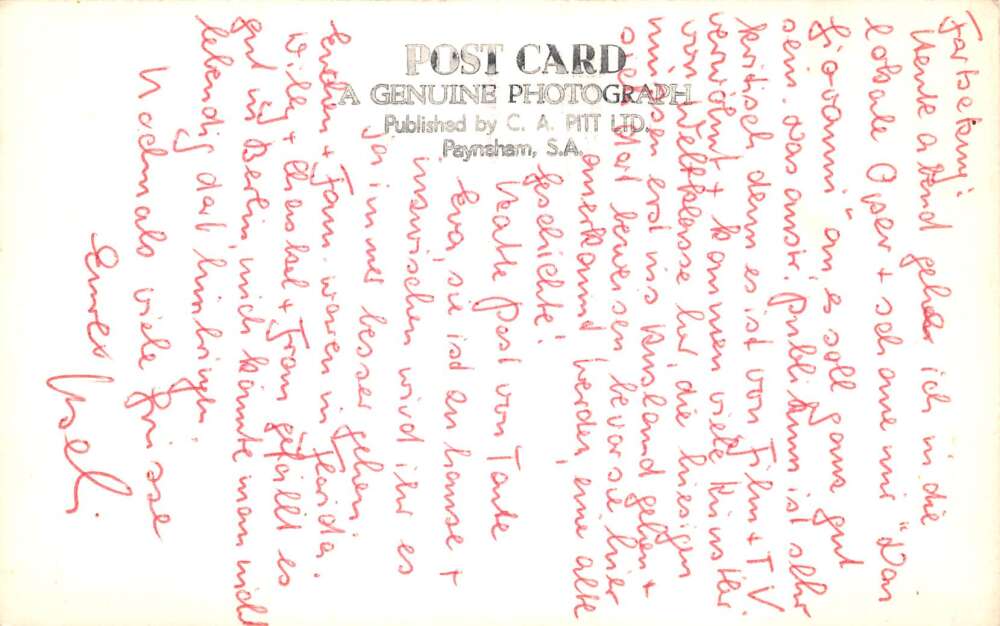 POST CARD
A GENUINE PHOTOGRAPH
Published by C. A. PITT LTD.
Payneham, S.A.
Fortsetzung:
Heute abend gehe ich in die
lokale Oper + schaue mir "Don
Giovanni" an, es soll ganz gut
sein. Das austr. Publikum ist sehr
kritisch denn es ist von Film + TV
verwöhnt + kommen viele Künstler
von Weltklasse her, die hiesigen
müssen erst ins Ausland gehen +
sich dort beweisen bevor sie hier
anerkannt werden, eine alte
Geschichte!
Hatte Post von Tante
Eva, sie ist zu hause +
inzwischen wird ihr es
ja immer besser gehen.
+ Fam. waren in Florida.
Willy + + Fam gefällt es
gut in Berlin, mich könnte man nicht
lebendig dort hinbringen.
Nochmals viele Grüsse
Euer
Useli.